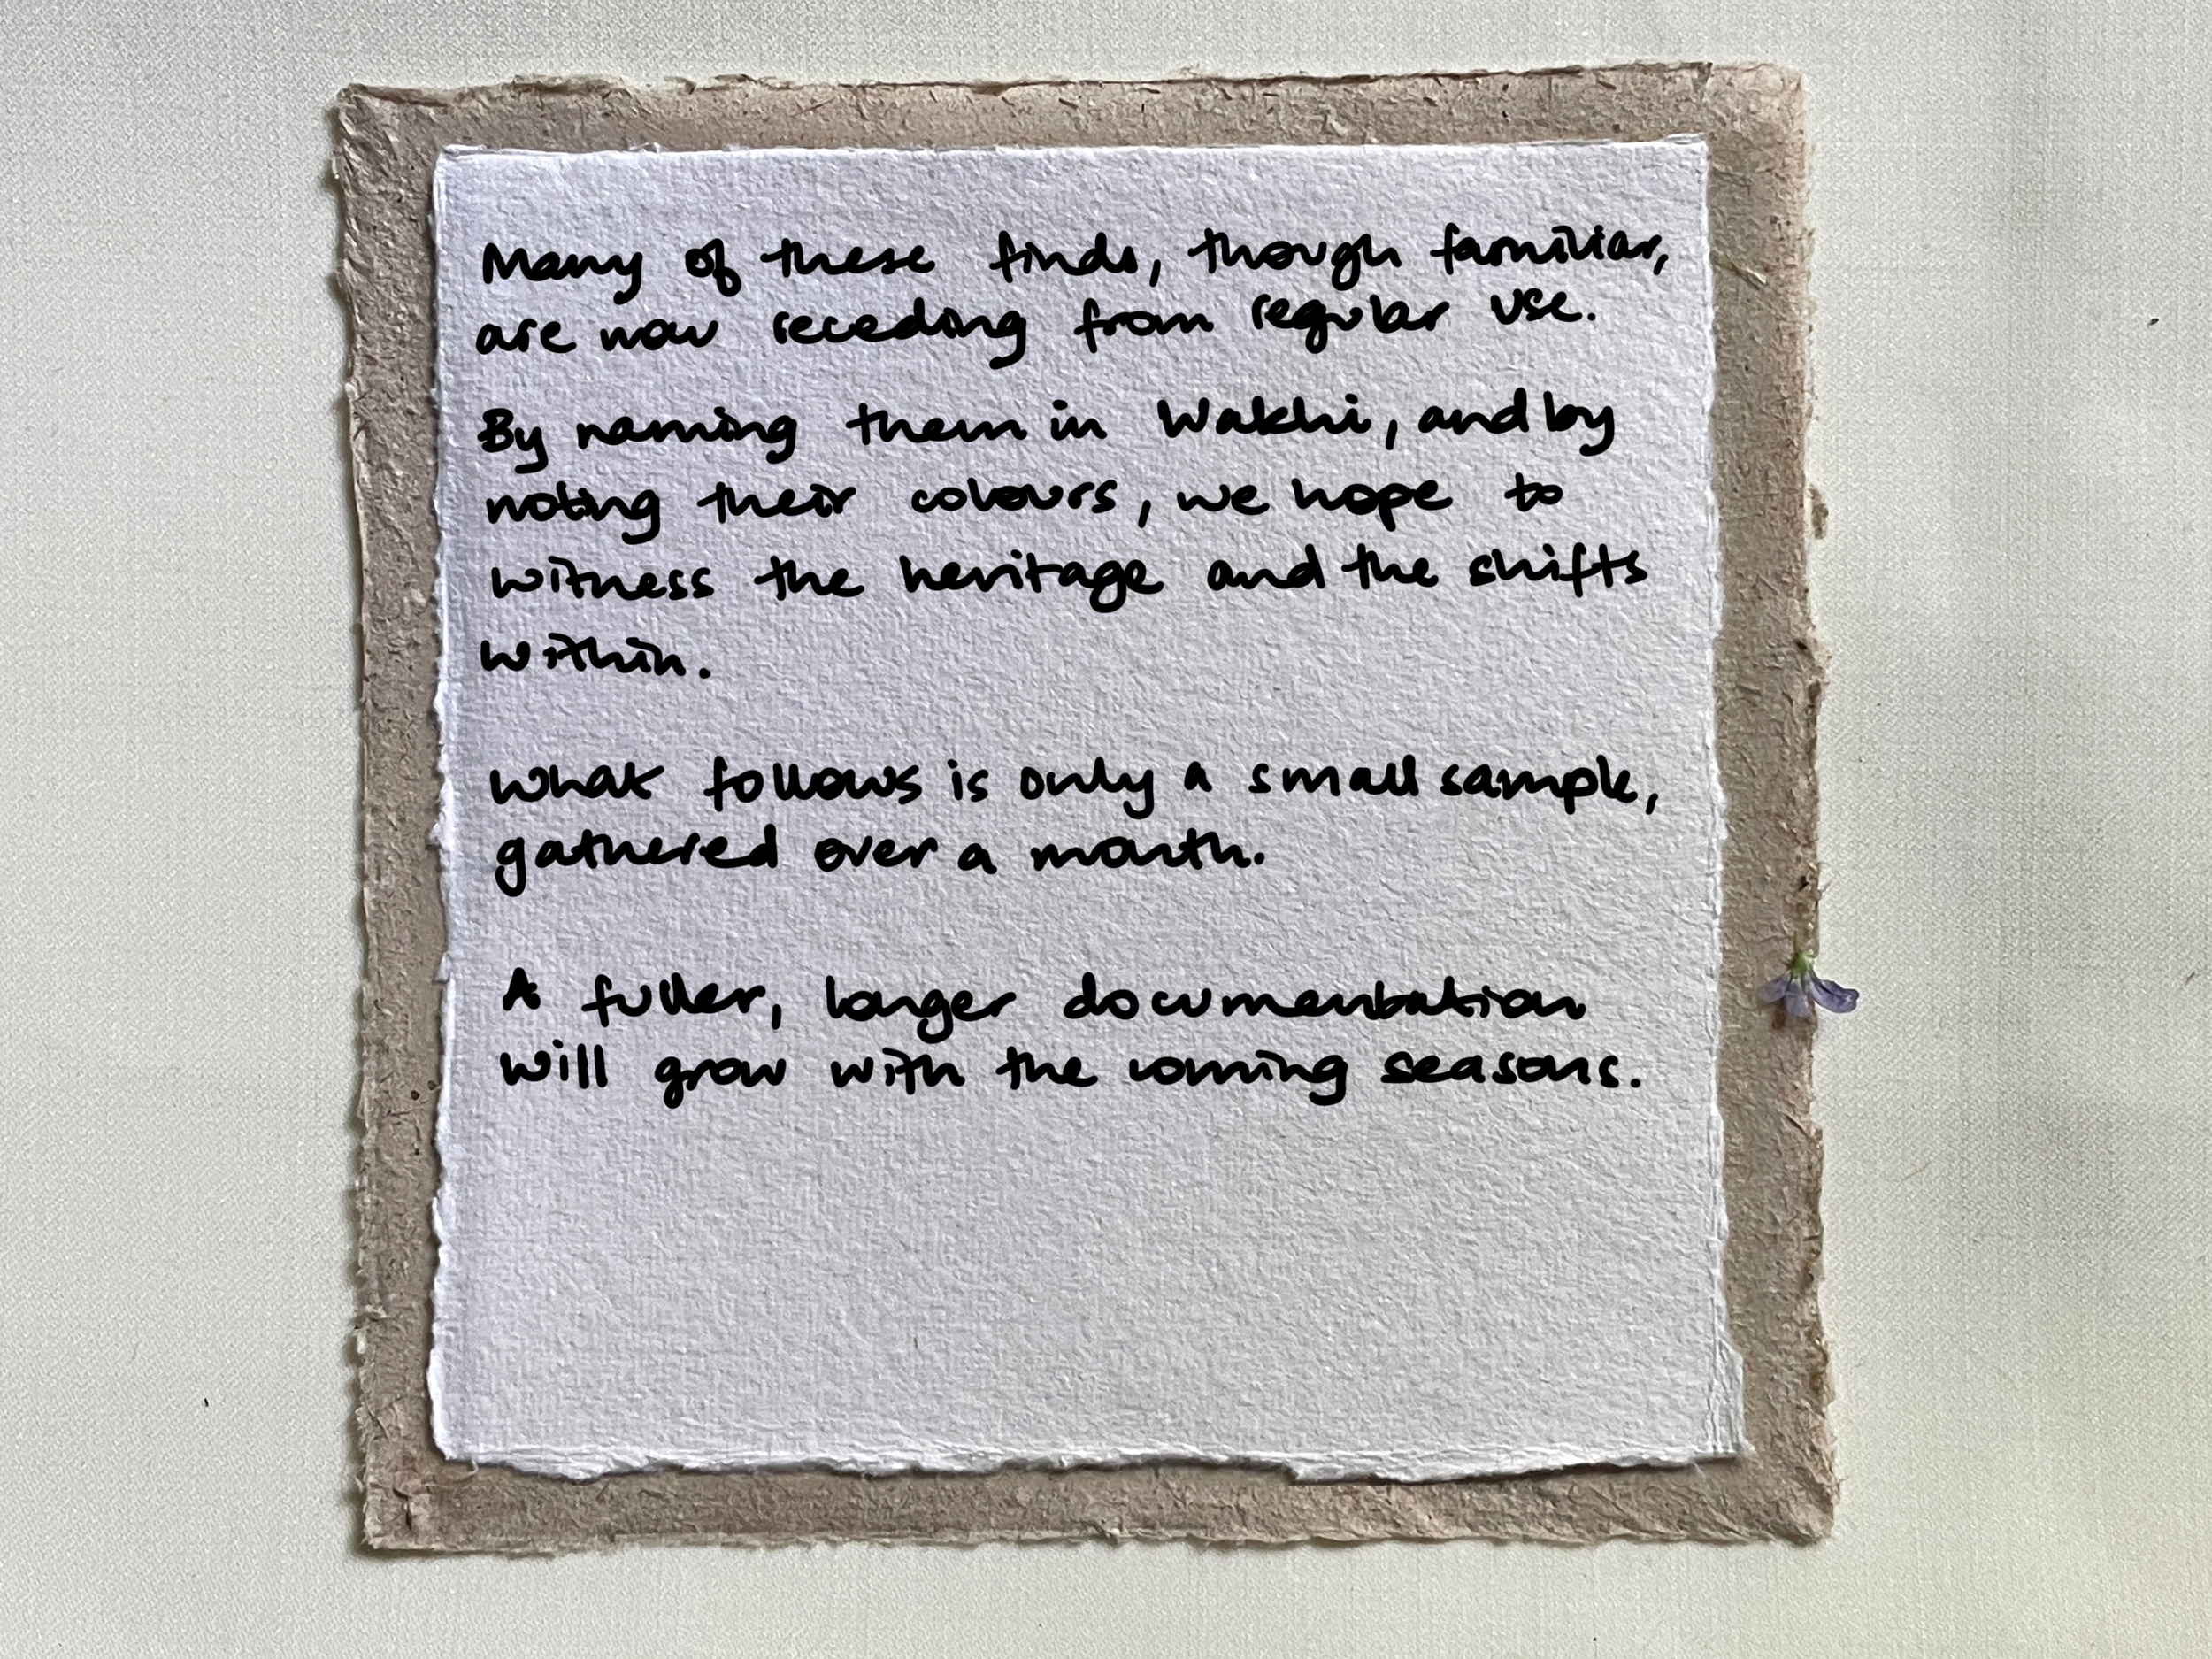 Many of these finds, though familiar,
are now receding from regular use.
By naming them in Wakhi, and by
noting their colours, we hope to
witness the heritage and the shifts
within.
What follows is only a small sample,
gathered over a month.
A fuller, longer documentation
will grow with the coming seasons.